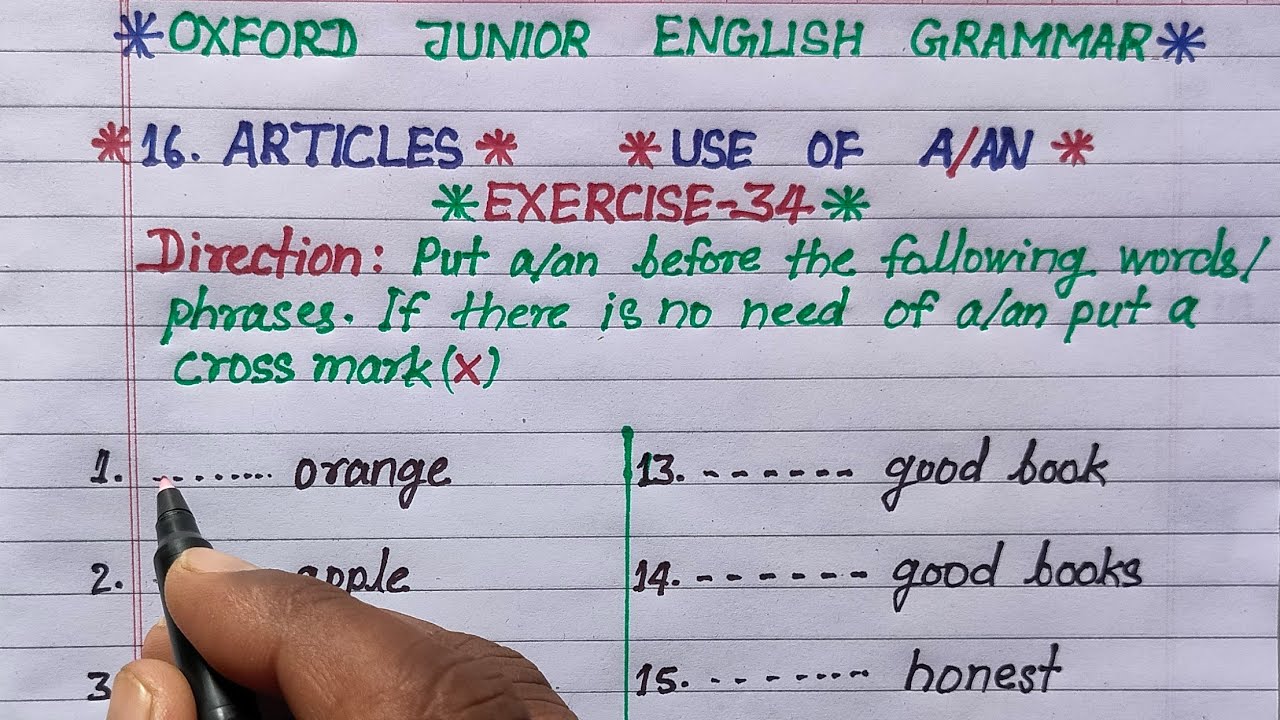 *OXFORD JUNIOR ENGLISH GRAMMAR*
*16. ARTICLES* *USE OF A/AN*
*EXERCISE-34*
Direction: Put a/an before the following words/
phrases. If there is no need of a/an put a
cross mark (x)
1. ......... orange
2. apple
3
13. ------- good book
14. ------- good books
15. ------- honest